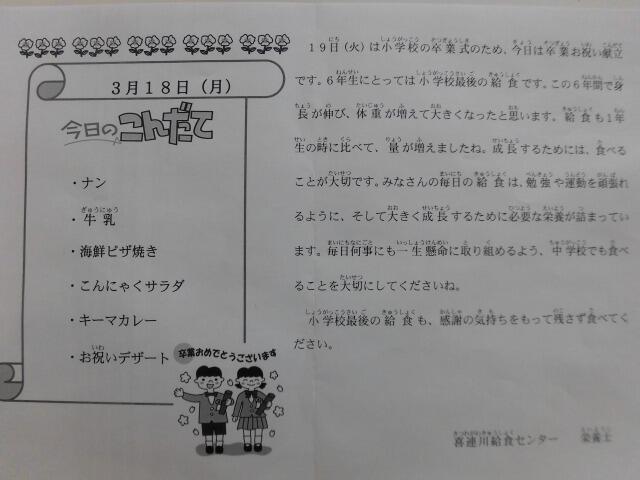 3月18日(月)
今日のこんだて
・ナン
・牛乳
・海鮮ピザ焼き
・こんにゃくサラダ
・キーマカレー
・お祝いデザート
卒業おめでとうございます
19日(火)は小学校の卒業式のため、今日は卒業お祝い献立
です。6年生にとっては小学校最後の給食です。この6年間で身
長が伸び、体重が増えて大きくなったと思います。給食も1年
生の時に比べて、量が増えましたね。成長するためには、食べる
ことが大切です。みなさんの毎日の給食は、勉強や運動を頑張れ
るように、そして大きく成長するために必要な栄養が詰まってい
ます。毎日何事にも一生懸命に取り組めるよう、中学校でも食べ
ることを大切にしてくださいね。
小学校最後の給食も、感謝の気持ちをもって残さず食べてく
ださい。
喜連川給食センター 栄養士